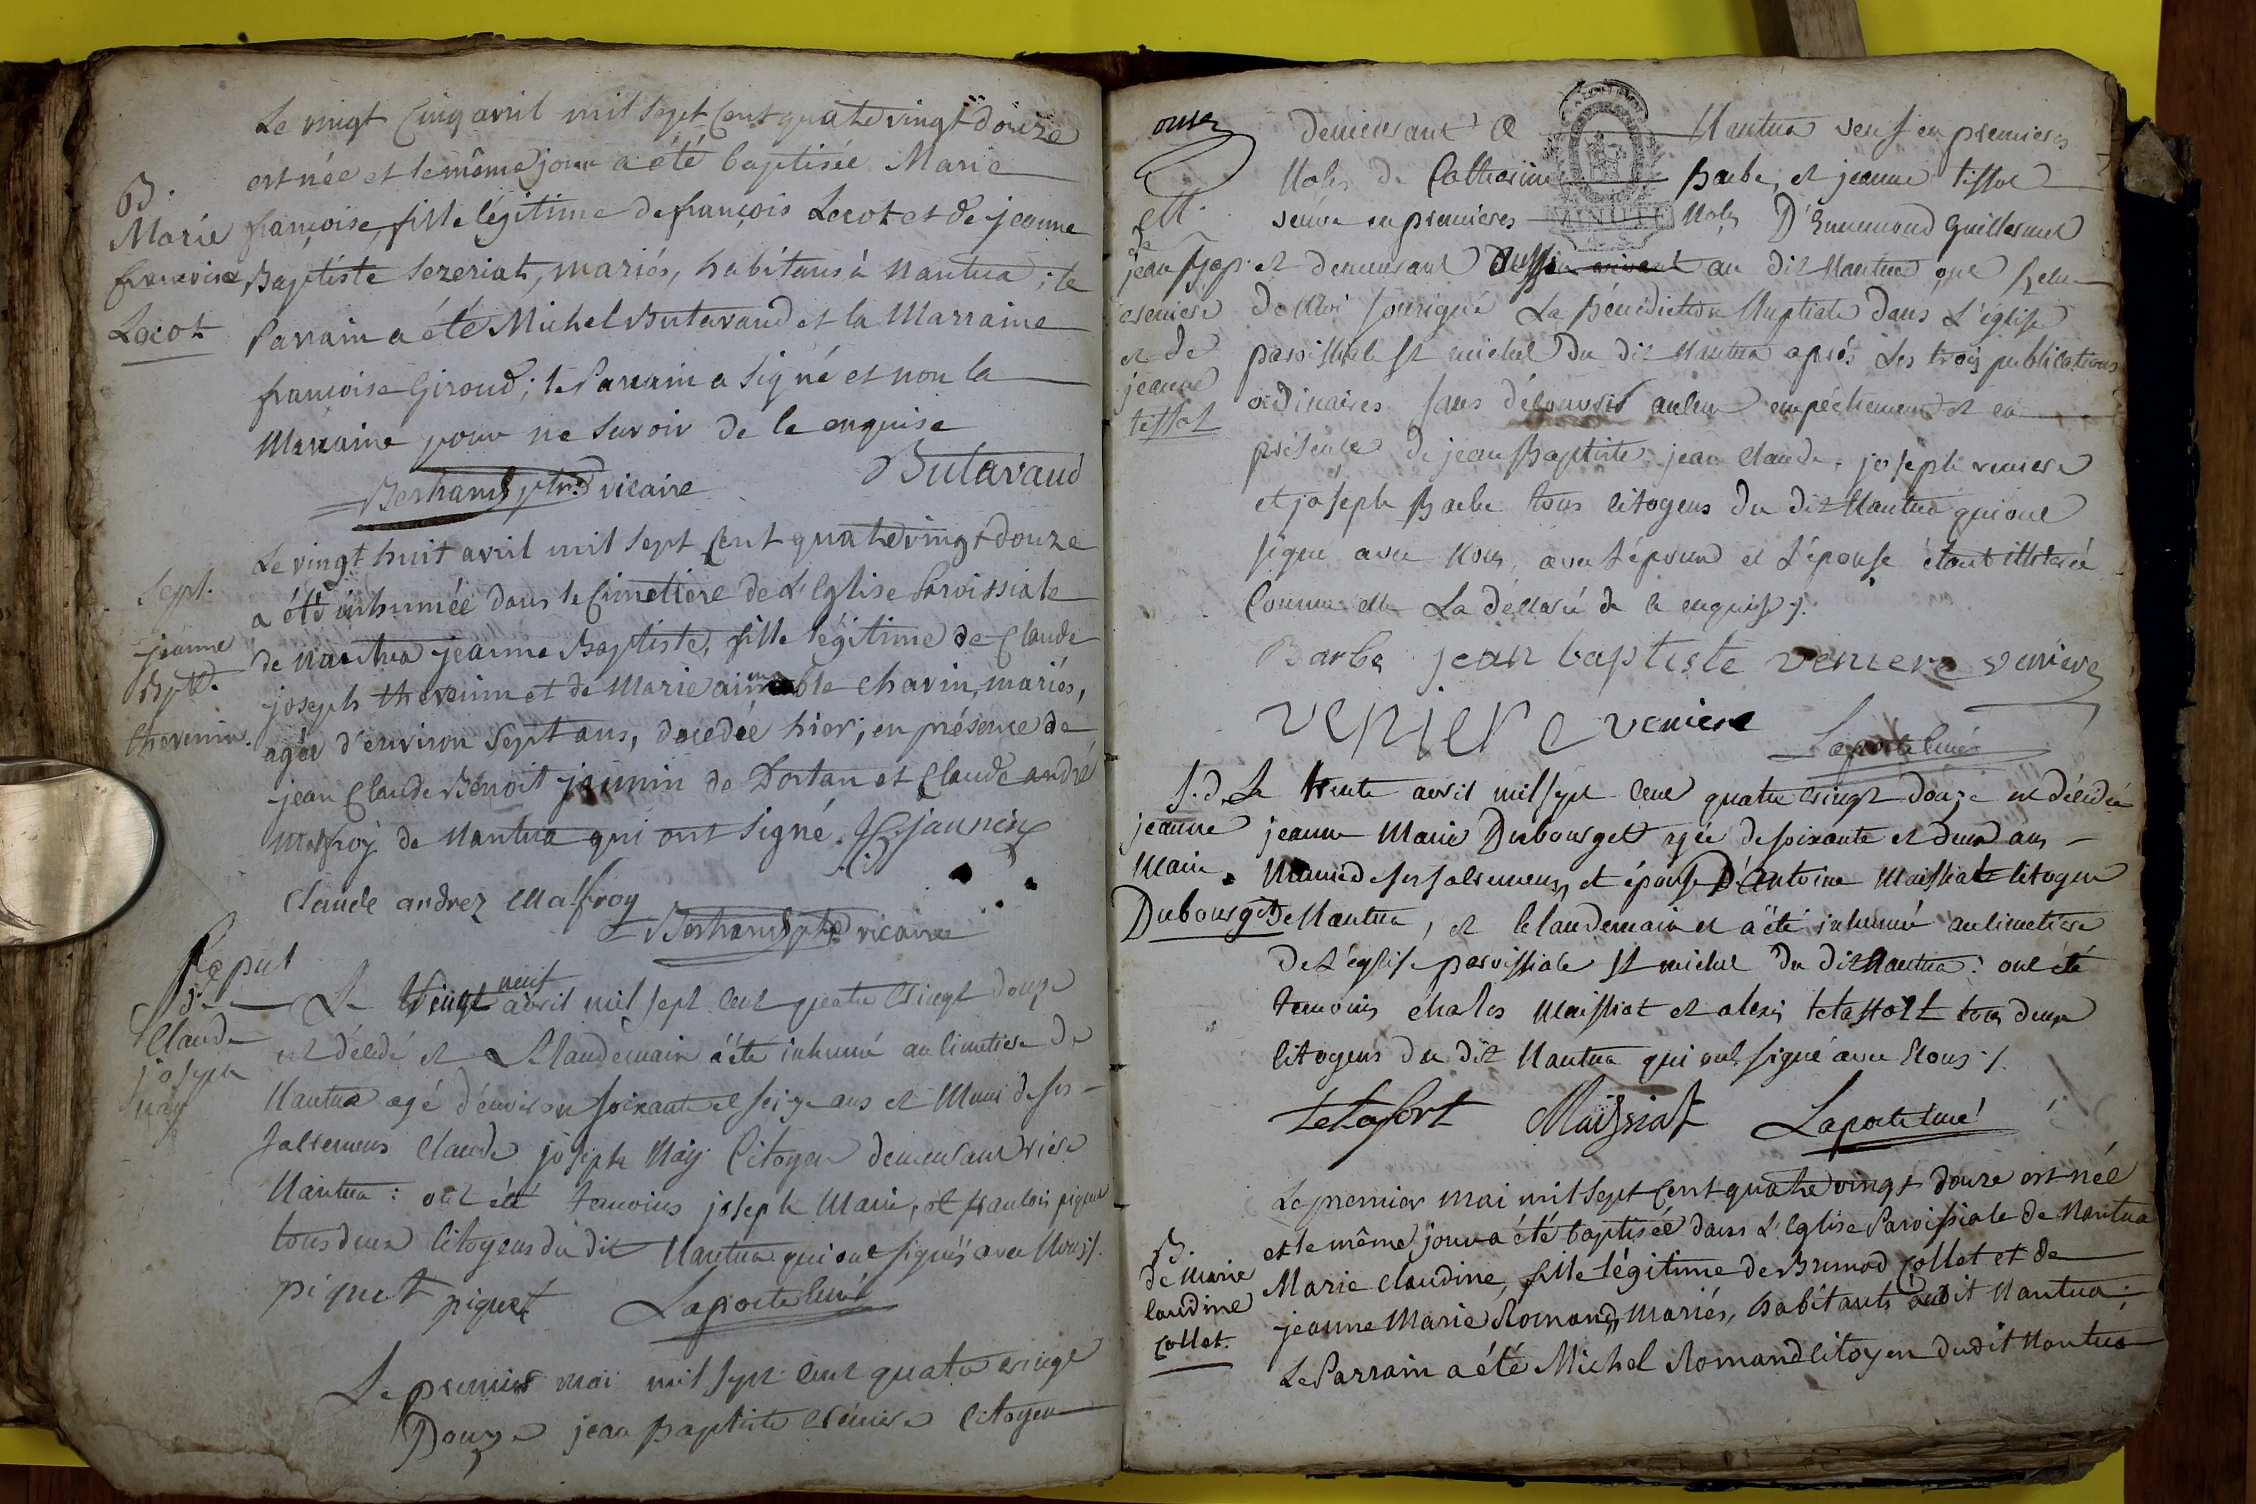 Le vingt Cinq avril mil sept Cent quatre vingt douze
est née et le même jour a été baptisée Marie
B.
Marie
francoise
Locot
françoise, fille légitime de françois Locot et de jeanne
Baptiste Sezeriat, mariés, habitans à Nantua ; le
Parrain a été Michel Butavand et la Marraine
françoise Giroud ; le Parrain a signé et non la
Marraine pour ne savoir de le enquise
Butavand
Bertrand ptre vicaire
Sept.
jeanne
Bpte.
thevenin.
Le vingt huit avril mil sept Cent quatre vingt douze
a été inhumée dans le Cimetière de L'Eglise Paroissiale
de Nantua jeanne Baptiste, fille légitime de Claude
joseph thevenin et de Marie aimable Chavin, mariés,
agée d'environ Sept ans, décédée hier ; en présence de
jean Claude Benoit jaunin de Dortan et Claude andré
Malfroy de Nantua qui ont signé. jaunin
Claude andrez Malfroy
Bertrand ptre vicaire
Sepul
de
Claude
joseph
Nay
Le Vingt neuf avril mil sept cent quatre vingt douze
est décédé et Le landemain a été inhumé au cimetiere de
Nantua agé d'environ soixante et seize ans et Muni de ses
sacremens Claude joseph Nay Citoyen demeurant riere
Nantua : ont été temoins joseph Marie, et francois piquet
tous deux citoyens du dit Nantua qui ont signés avec Nous ./.
piquet piquet Laporte Curé
Le premier mai mil sept cent quatre vingt
Douze jean Baptiste veniere Citoyen
onze
M.
de
jean Bap.
veniere
et de
jeanne
tissot
demeurant a Nantua veuf en premieres
Noces de Catherine Barbe, et jeanne tissot
veuve en premieres Noces D'Ennemond Guillermet
et demeurant aussi au dit Nantua ont Reçu
de Moi soussigné La Bénédiction Nuptiale dans L'église
paroissiale St michel du dit Nantua après Les trois publications
ordinaires sans découvrir aucun empêchement et en
présence de jean Baptiste, jean Claude, joseph veniere
et joseph Barbe tous citoyens du dit Nantua qui ont
signé avec Nous, avec L'époux et L'épouse étant illiterée
Comme elle La déclaré de ce enquise ./.
Barbe jean baptiste veniere veniere
veniere veniere
Laporte Curé
S. d.
jeanne
Marie
Dubourget
Le trente avril mil sept cent quatre vingt douze est décédée
jeanne Marie Dubourget agée de soixante et deux ans
Munie de ses sacremens, et épouse D'Antoine Maissiat citoyen
De Nantua, et le landemain et a été inhumée au cimetiere
De L'église paroissiale St michel du dit Nantua : ont été
temoins charles Maissiat et alexis tetafort tous deux
citoyens du dit Nantua qui ont signé avec Nous ./.
tetafort Maissiat Laporte Curé
B.
de Marie
laudine
Collet.
Le premier mai mil sept Cent quatre vingt douze est née
et le même jour a été baptisée dans L'Eglise Paroissiale de Nantua
Marie Claudine, fille légitime de Brunod Collet et de
jeanne Marie Romand, mariés, habitants audit Nantua ;
Le Parrain a été Michel Romand Citoyen dudit Nantua